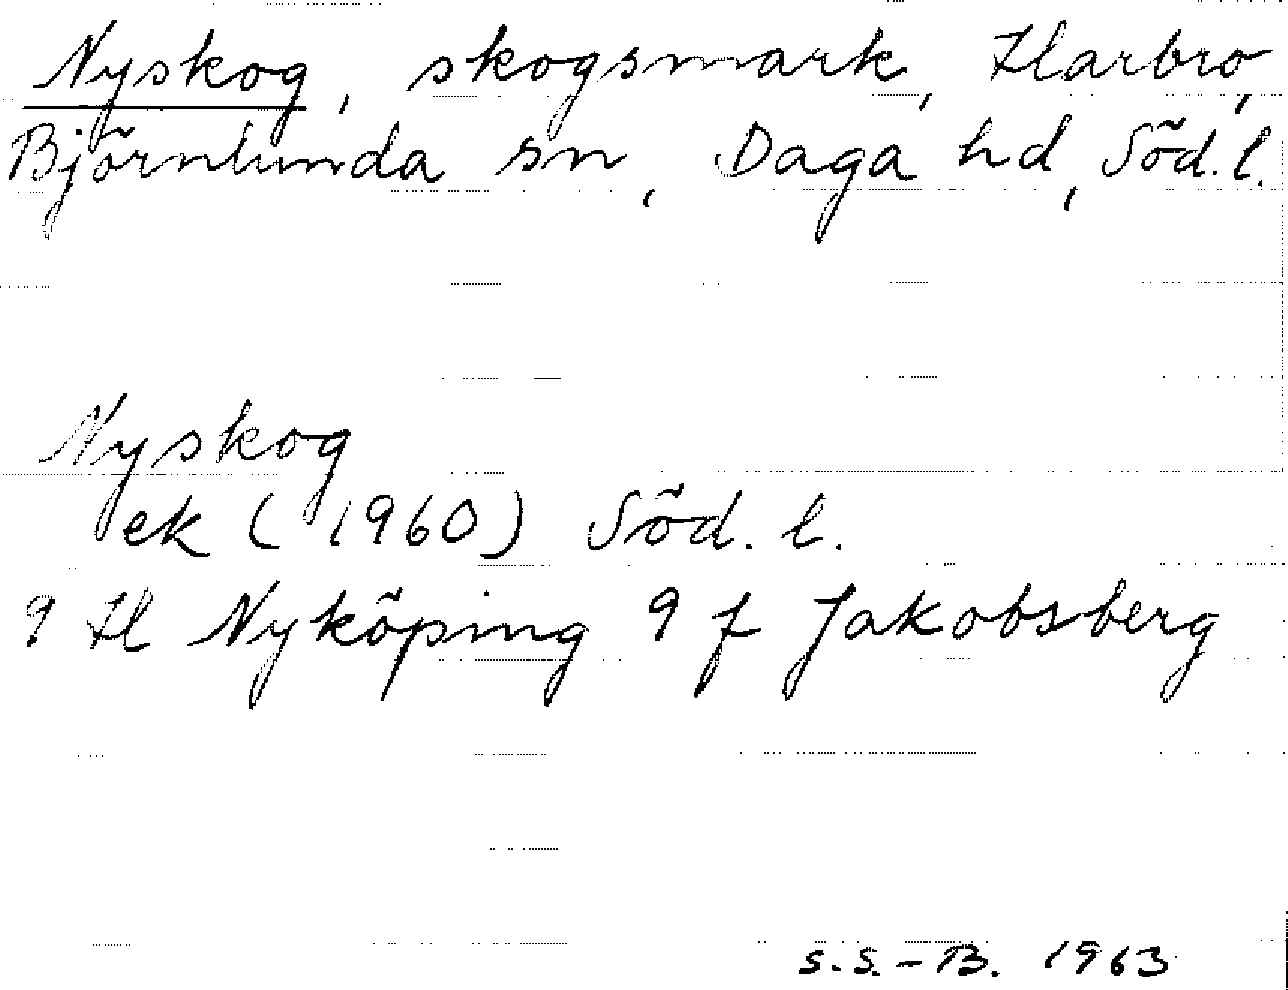 Nyskog, skogsmark, Harbro,
Björnlunda sn, Daga hd, Söd. l.
Nyskog
ek (1960) Söd. l.
9 H Nyköping 9 f Jakobsberg
S.S.-B. 1963